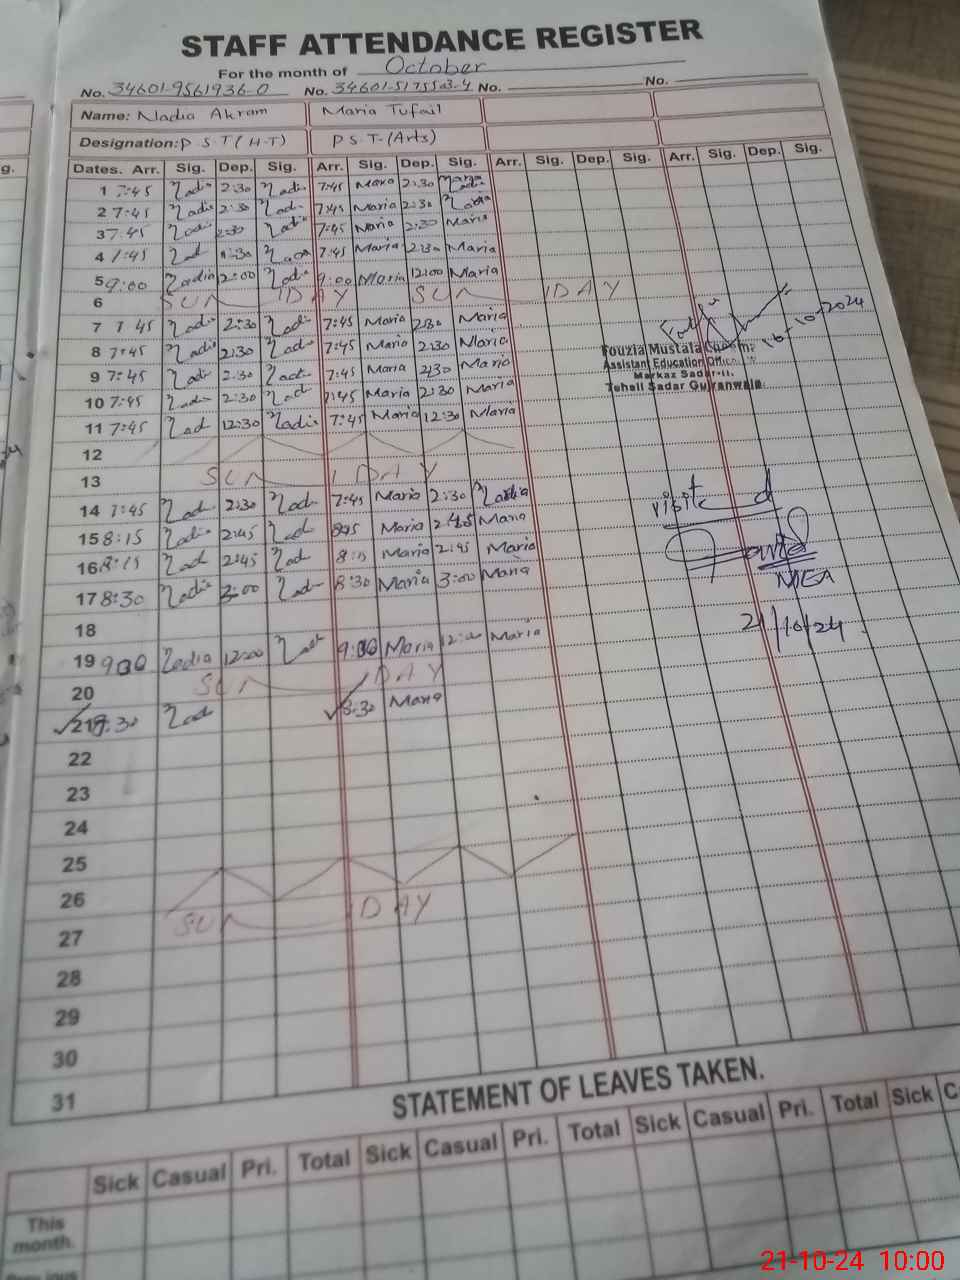 STAFF ATTENDANCE REGISTER
For the month of October
No. 34601-9561936-0 No. 34601-5175503-4 No. No.
Name: Nadia Akram Maria Tufail
Designation: P.S.T (H-T) P.S.T-(Arts)
Dates. Arr. Sig. Dep. Sig. Arr. Sig. Dep. Sig. Arr. Sig. Dep. Sig. Arr. Sig. Dep. Sig.
1 7:45 Nadia 2:30 Nadia 7:45 Maria 2:30
2 7:45 Nadia 2:30 Nad 7:45 Maria 2:30
3 7:45 Nadia 2:30 Nadia 7:45 Maria 2:30 Maria
4 7:45 Nad 2:30 7:45 Maria 2:30 Maria
5 9:00 Nadia 12:00 Nadia 9:00 Maria 12:00 Maria
6 SUN DAY SUN DAY
7 7:45 Nadia 2:30 Nadi 7:45 Maria 2:30 Maria
8 7:45 Nadia 2:30 Nad 7:45 Maria 2:30 Maria
9 7:45 Nadi 2:30 Nadi 7:45 Maria 2:30 Maria
10 7:45 Nadi 2:30 Nad 7:45 Maria 2:30 Maria
11 7:45 Nad 12:30 Nadia 7:45 Maria 12:30 Maria
12
13 SUN DAY
14 7:45 Nad 2:30 Nad 7:45 Maria 2:30
15 8:15 Nadia 2:45 Nad Maria 2:45 Maria
16 8:15 Nad 2:45 Nad 8:15 Maria 2:45 Maria
17 8:30 Nadia 3:00 Nad 8:30 Maria 3:00 Maria
18
19 9:00 Nadia 12:00 Nad 9:00 Maria 12:00 Maria
20 SUN DAY
21 8:30 Nad 8:30 Maria
22
23
24
25
26
27 SUN DAY
28
29
30
31
16-10-2024
Fouzia Mustafa
Assistant Education Officer
Markaz Sadar-II.
Tehsil Sadar Gujranwala
visited
MEA
21/10/24
STATEMENT OF LEAVES TAKEN.
Sick Casual Pri. Total Sick Casual Pri. Total Sick Casual Pri. Total Sick
This
month.
Previous
21-10-24 10:00